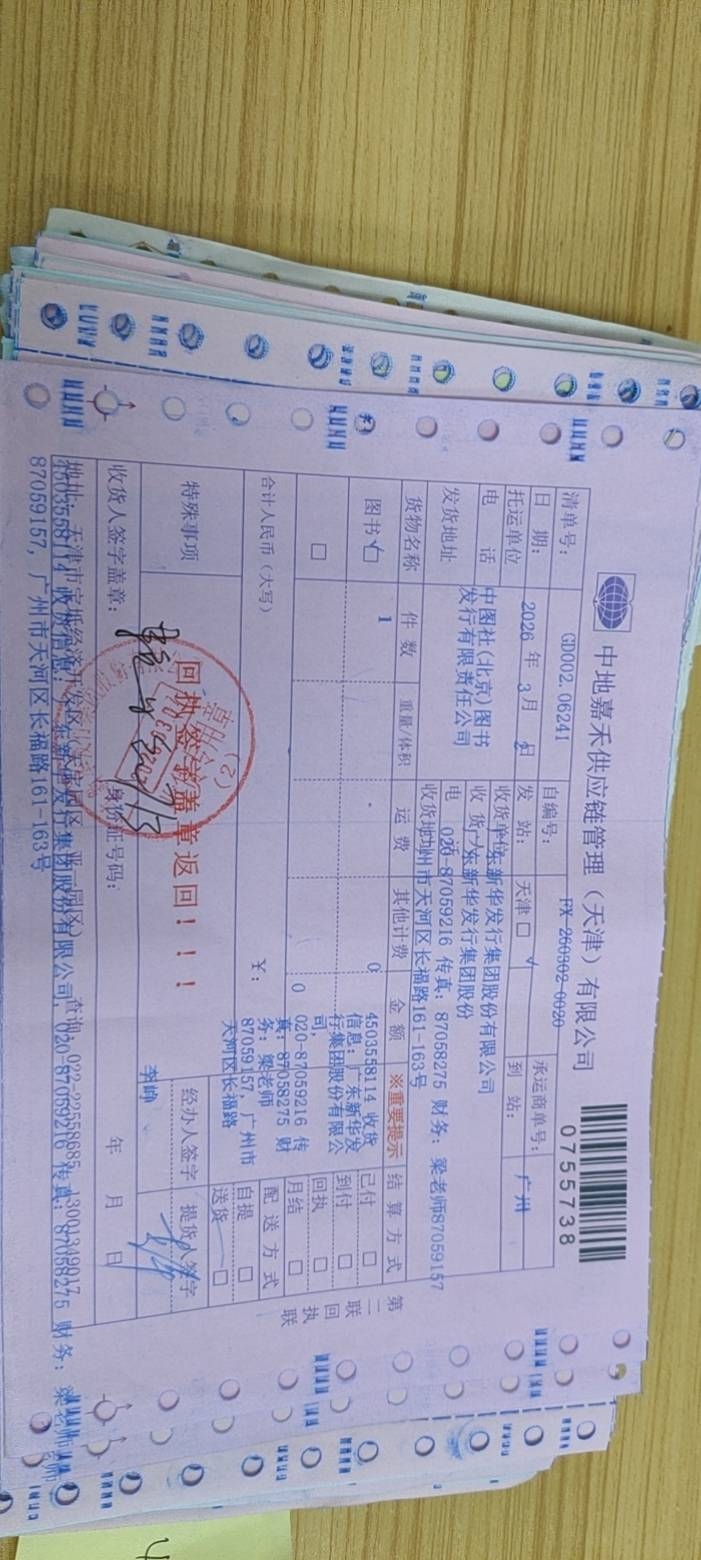 中地嘉禾供应链管理（天津）有限公司
0755738
清单号： GD002.06241 自编号： FX-260302-0020 承运商单号：
日 期： 2026 年 3 月 2 日 发 站： 天津 □ √ 到 站： 广州
托运单位 中图社(北京)图书发行有限责任公司
收货单位 广东新华发行集团股份有限公司
收 货 广东新华发行集团股份
电 话
电 020-87059216 传真: 87058275 财务: 梁老师87059157
发货地址
收货地 州市天河区长福路161-163号
货物名称 件 数 重量/体积 运 费 其他计费 金 额 ※重要提示 结 算 方 式
图书 √ □ 1 0
□ 0
4503558114 收货
信息: 广东新华发
行集团股份有限公
司,
020-87059216 传
真: 87058275 财
务: 梁老师
87059157, 广州市
天河区长福路
已付 □
到付 □
回执 □
月结 □
配 送 方 式
自提 □
送货 □
合计人民币（大写） ￥：
特殊事项
回执签字盖章返回！！！
经办人签字 提货人签字
李帅
收货人签字盖章： 身份证号码： 年 月 日
第二联 回执联
地址：天津市宝坻经济开发区
4503558114 收货信息: 广东新华发行集团股份有限公司, 020-87059216 传真: 87058275 财务: 梁老师
87059157, 广州市天河区长福路161-163号